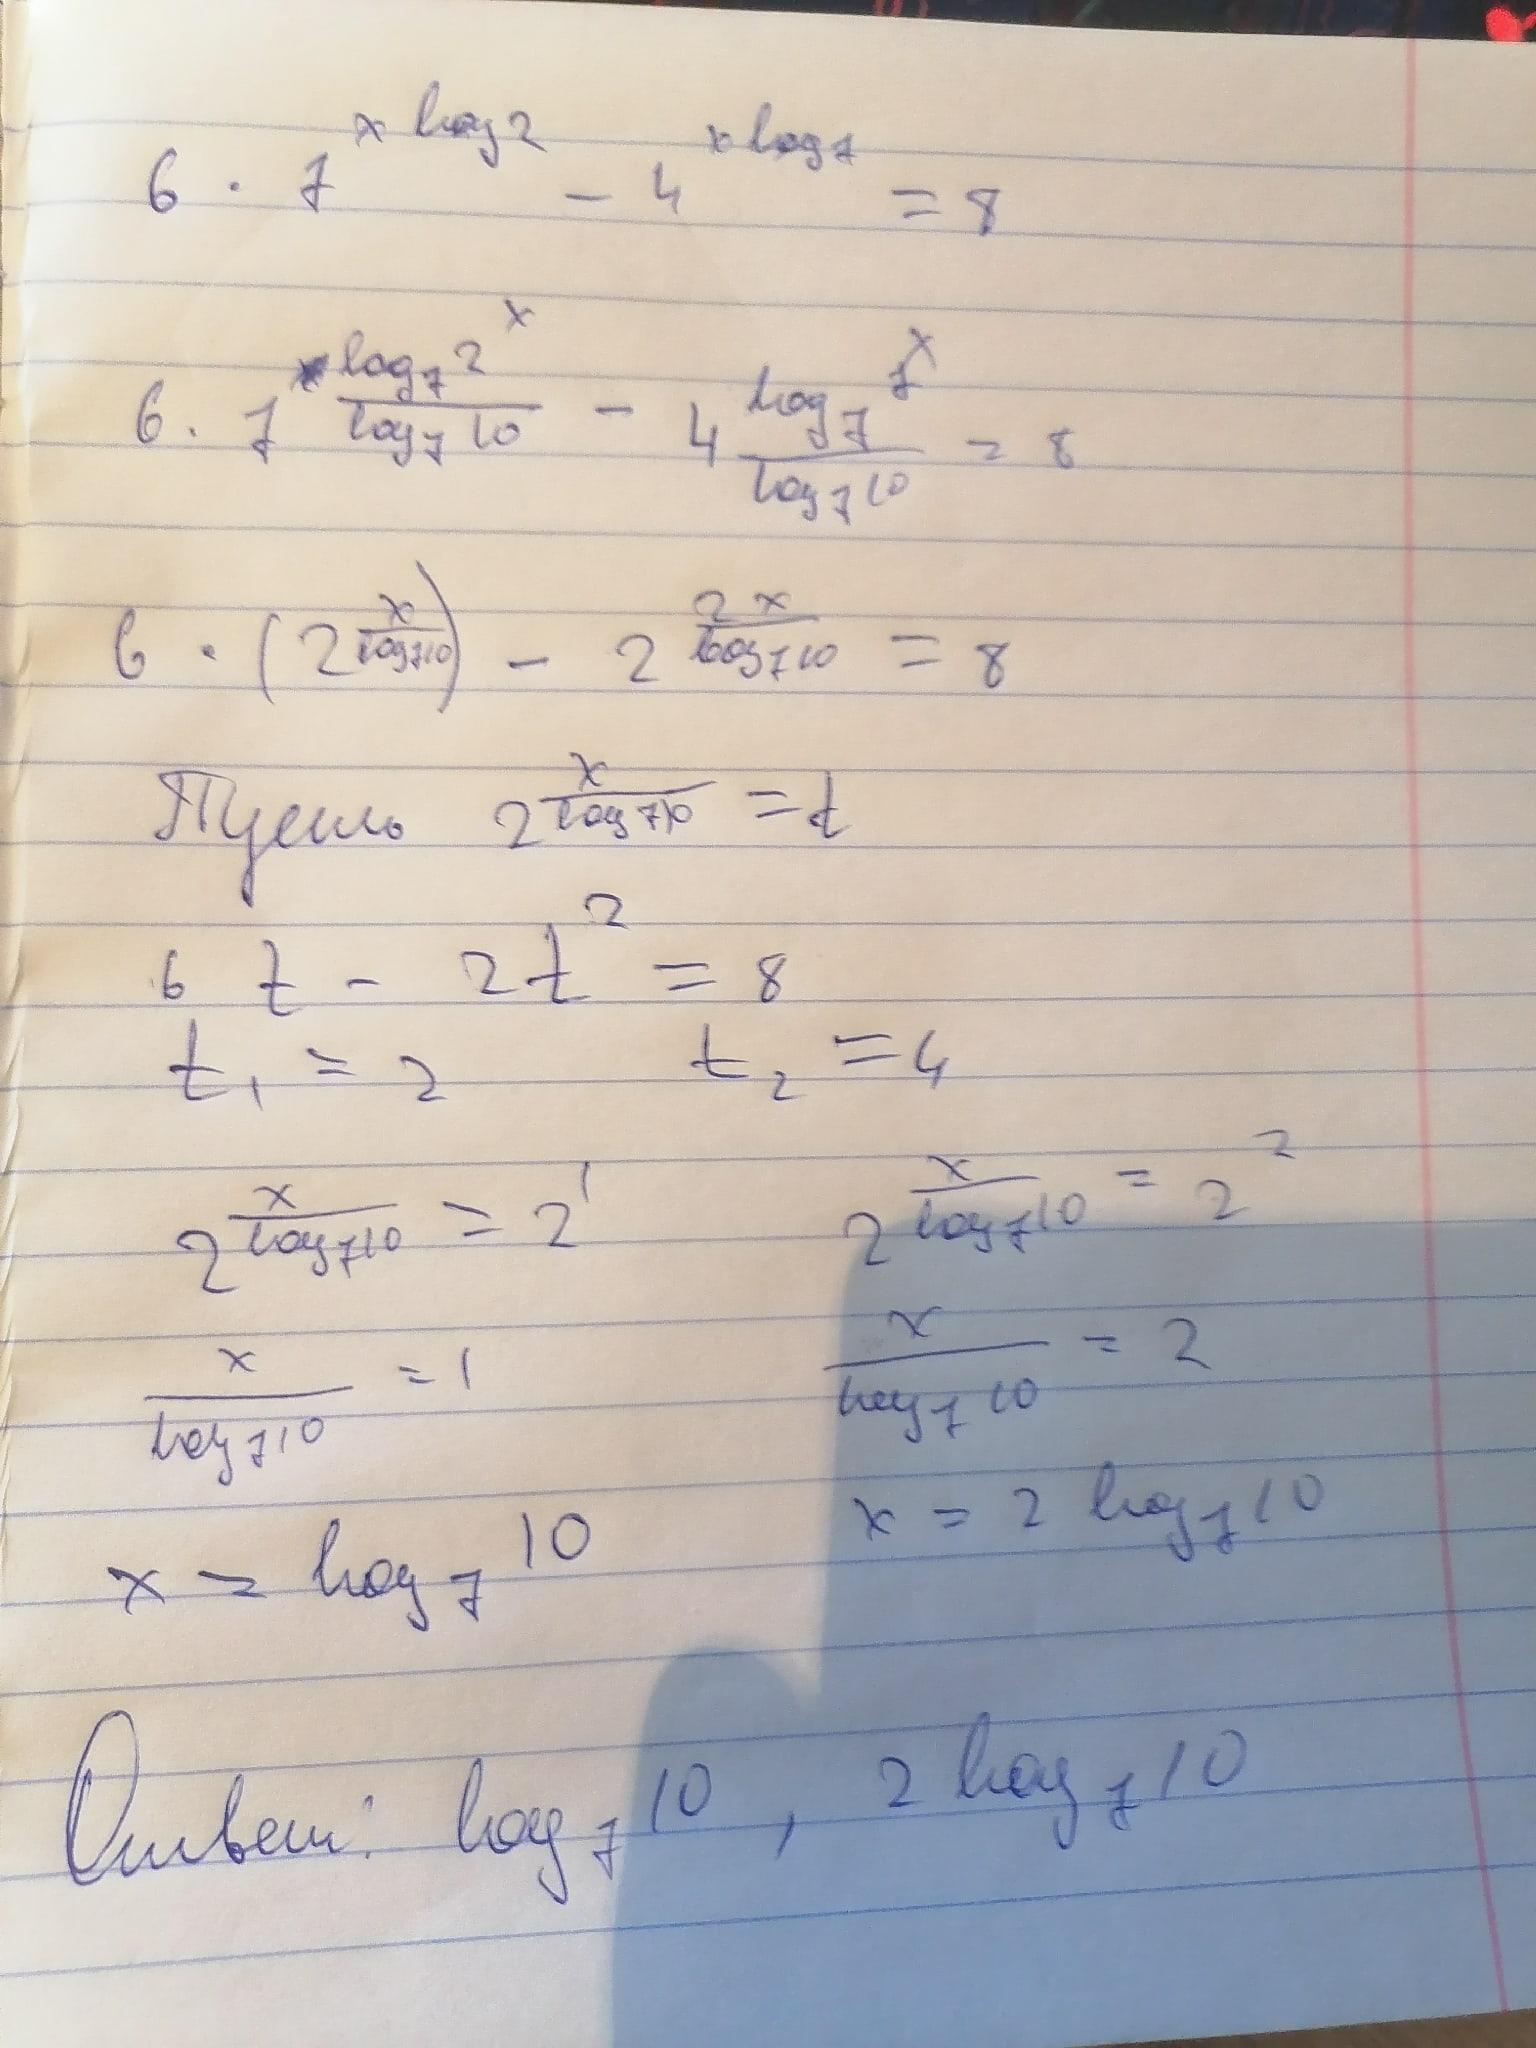 6 · 7^(x log 2) − 4^(x log 7) = 8
6 · 7^((log_7 2^x)/(log_7 10)) − 4^((log_7 7^x)/(log_7 10)) = 8
6 · (2^(x/(log_7 10))) − 2^(2x/(log_7 10)) = 8
Пусть 2^(x/(log_7 10)) = t
6 t − 2t^2 = 8
t_1 = 2 t_2 = 4
2^(x/(log_7 10)) = 2^1 2^(x/(log_7 10)) = 2^2
x/(log_7 10) = 1 x/(log_7 10) = 2
x = log_7 10 x = 2 log_7 10
Ответ: log_7 10 , 2 log_7 10